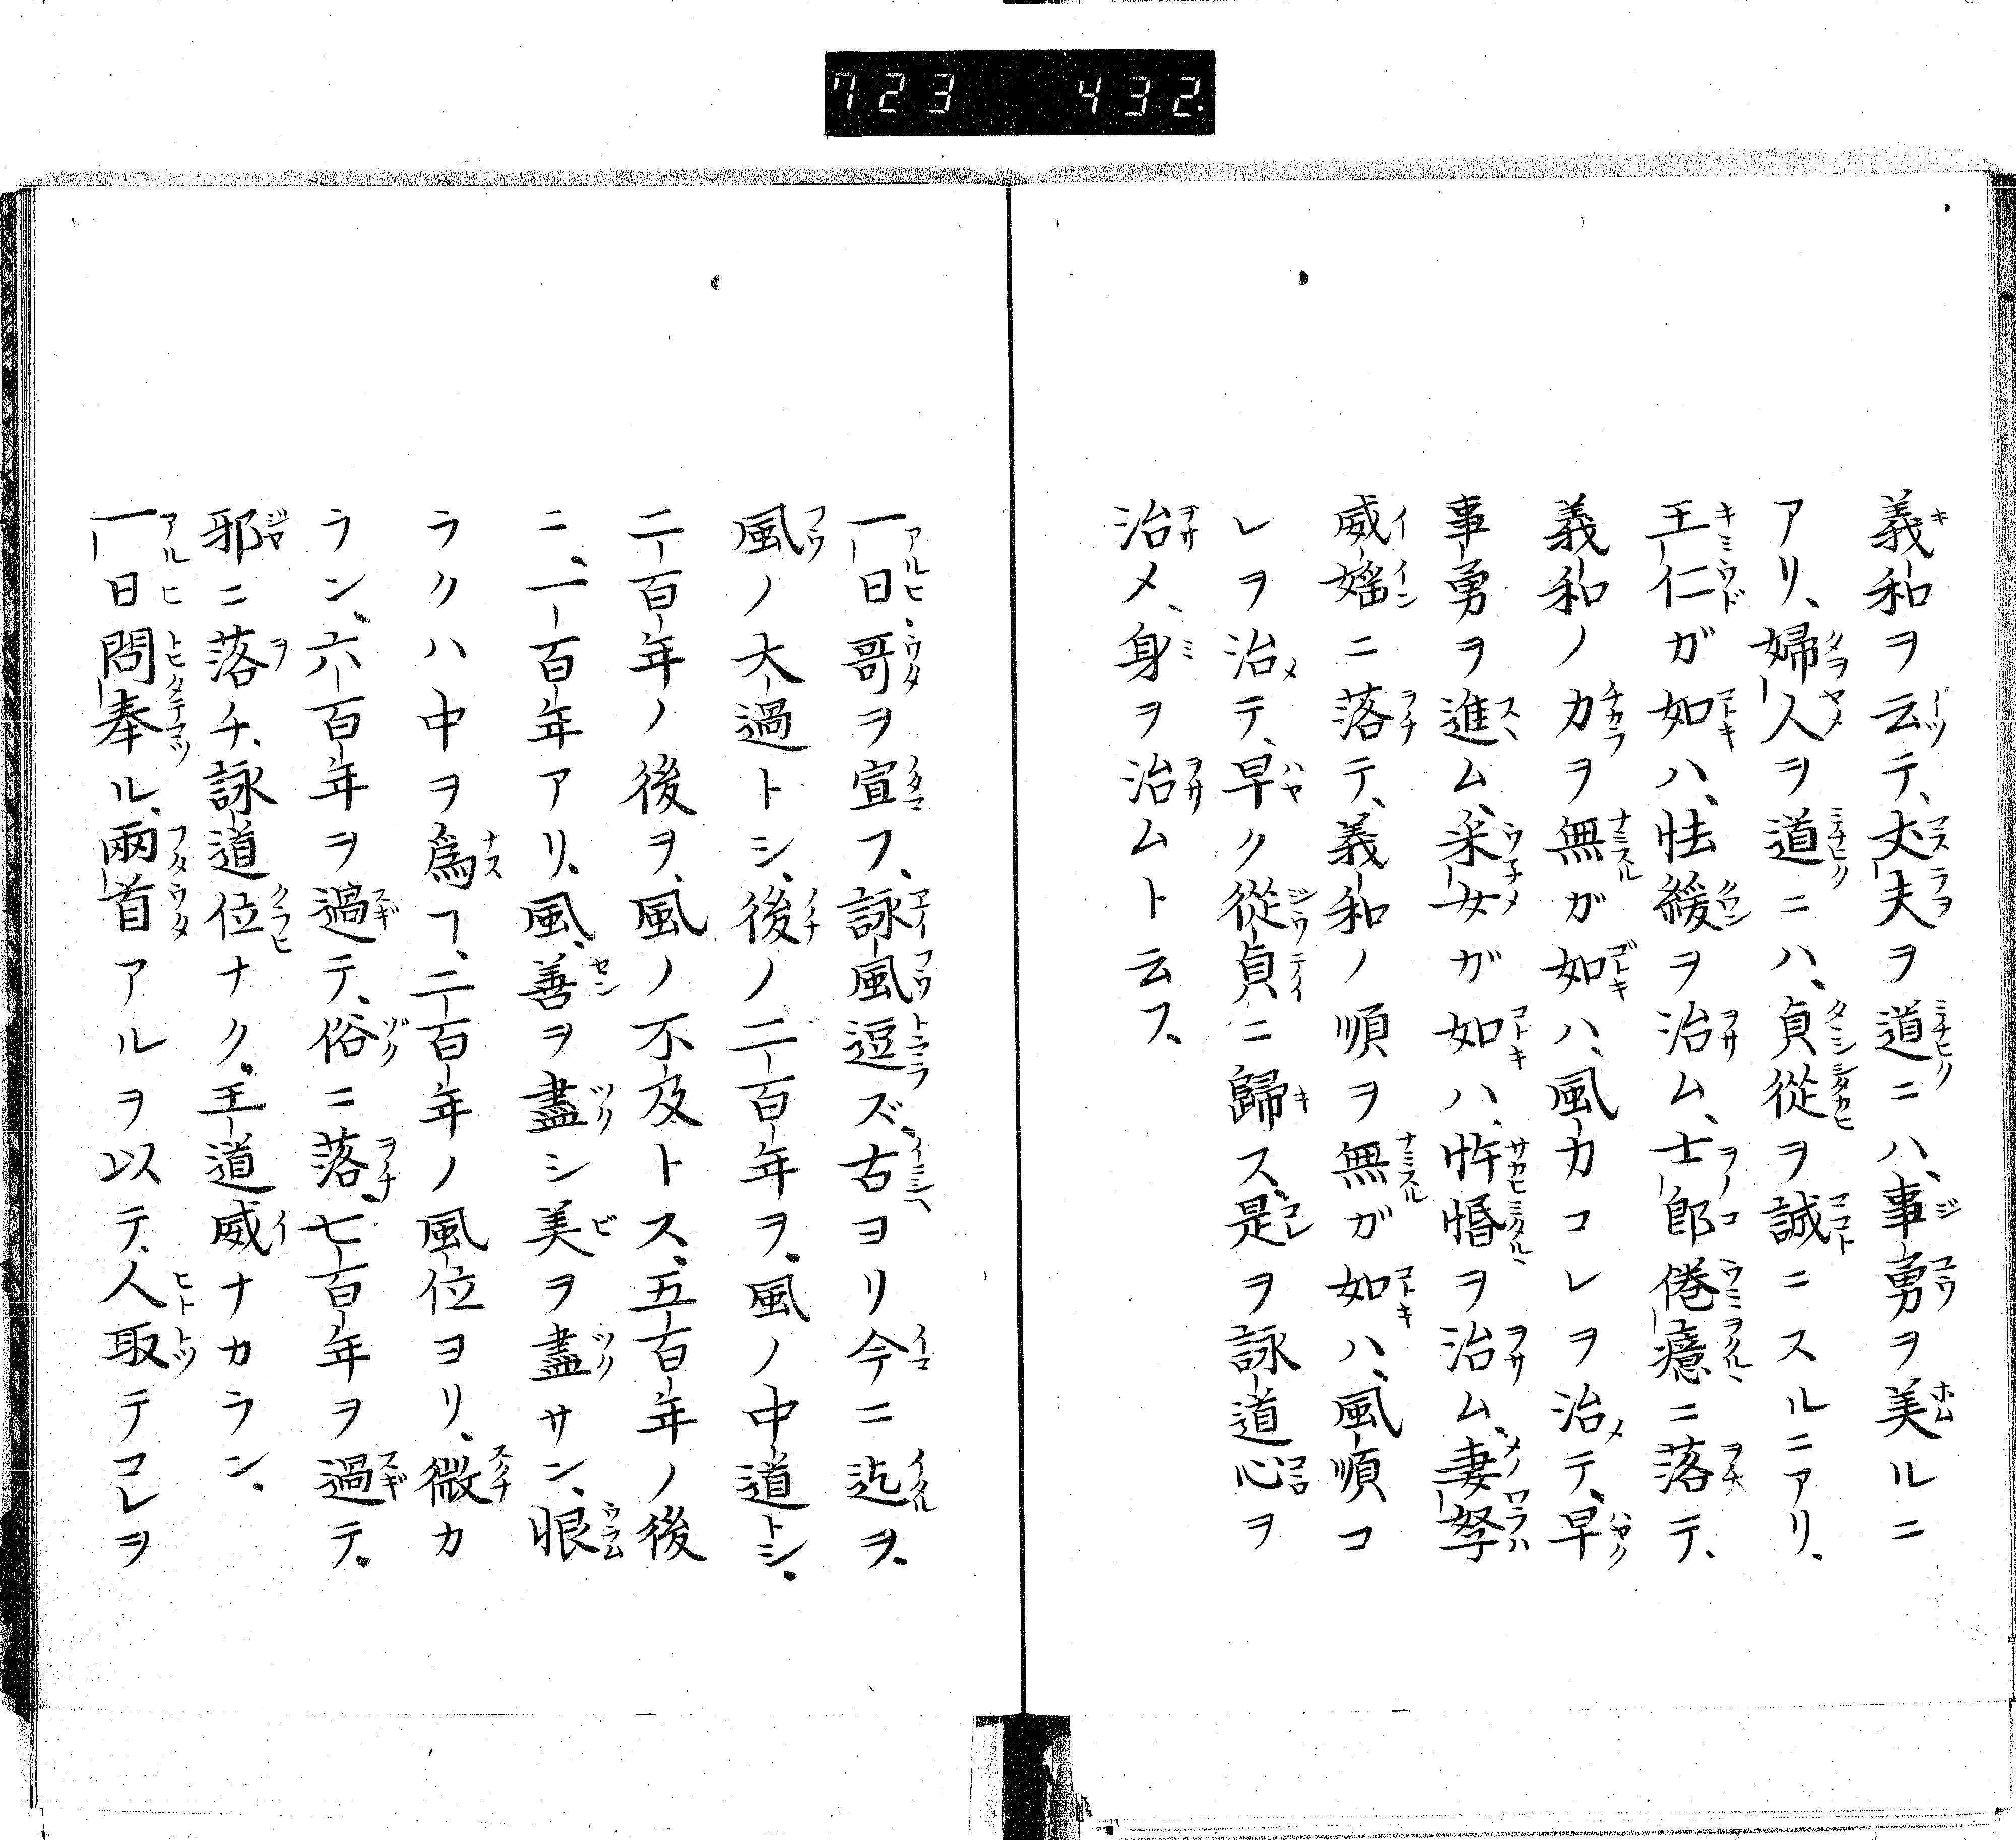 723 432
義和ヲ云テ、丈夫ヲ道ニハ、事勇ヲ美ルニ
アリ、婦人ヲ道ニハ、貞從ヲ誠ニスルニアリ、
王仁ガ如ハ、怯緩ヲ治ム、士郎倦癔ニ落テ、
義和ノ力ヲ無ガ如ハ、風力コレヲ治テ、早
事勇ヲ進ム、采女ガ如ハ、忤惛ヲ治ム、妻孥
威媱ニ落テ、義和ノ順ヲ無ガ如ハ、風順コ
レヲ治テ、早ク從貞ニ歸ス、是ヲ詠道心ヲ
治メ、身ヲ治ムト云フ、
一日哥ヲ宣フ、詠風逗ズ、古ヨリ今ニ迄ヲ、
風ノ大過トシ、後ノ二百年ヲ、風ノ中道トシ、
二百年ノ後ヲ、風ノ不及トス、五百年ノ後
ニ、一百年アリ、風、善ヲ盡シ美ヲ盡サン、恨
ラクハ中ヲ爲ヿ、二百年ノ風位ヨリ、微カ
ラン、六百年ヲ過テ、俗ニ落、七百年ヲ過テ、
邪ニ落チ、詠道位ナク、王道威ナカラン、
一日問奉ル、兩首アルヲ以テ、人取テコレヲ